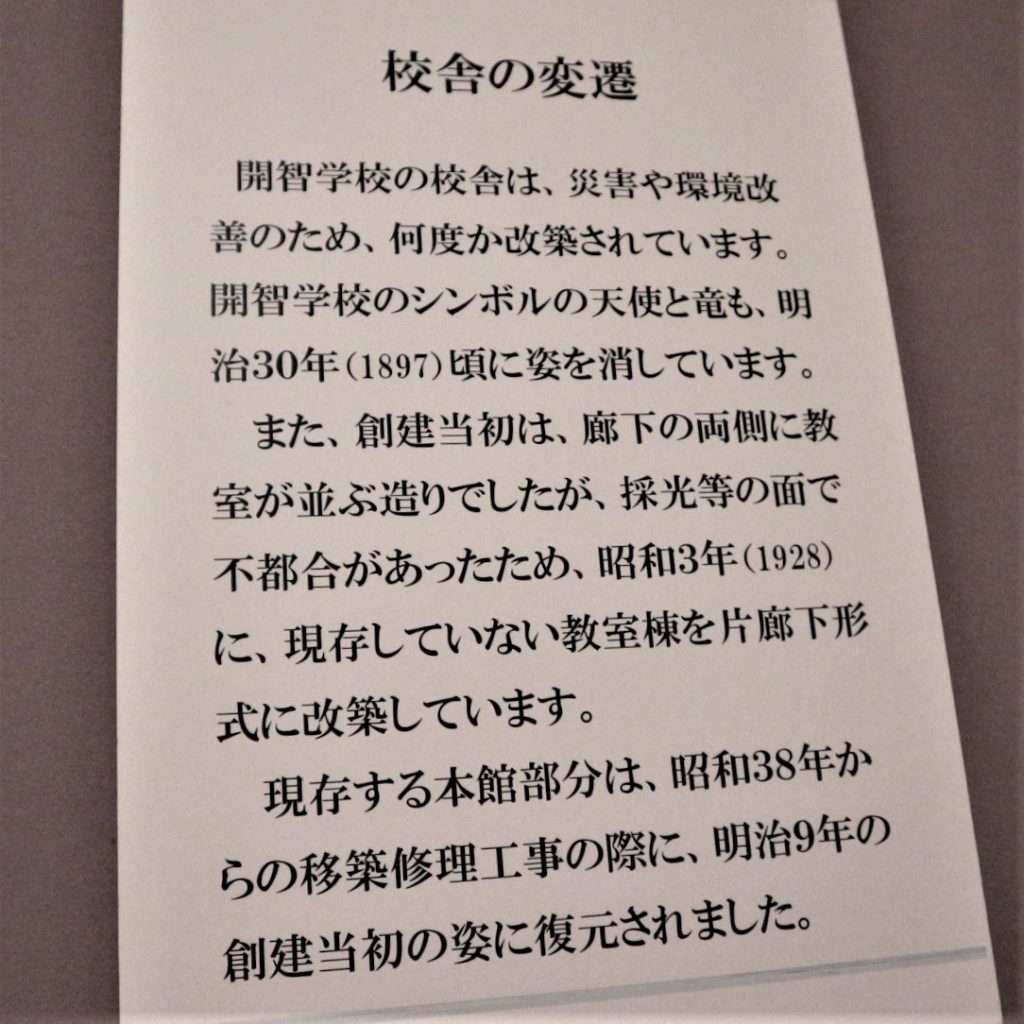 校舎の変遷
開智学校の校舎は、災害や環境改
善のため、何度か改築されています。
開智学校のシンボルの天使と竜も、明
治30年(1897)頃に姿を消しています。
また、創建当初は、廊下の両側に教
室が並ぶ造りでしたが、採光等の面で
不都合があったため、昭和3年(1928)
に、現存していない教室棟を片廊下形
式に改築しています。
現存する本館部分は、昭和38年か
らの移築修理工事の際に、明治9年の
創建当初の姿に復元されました。